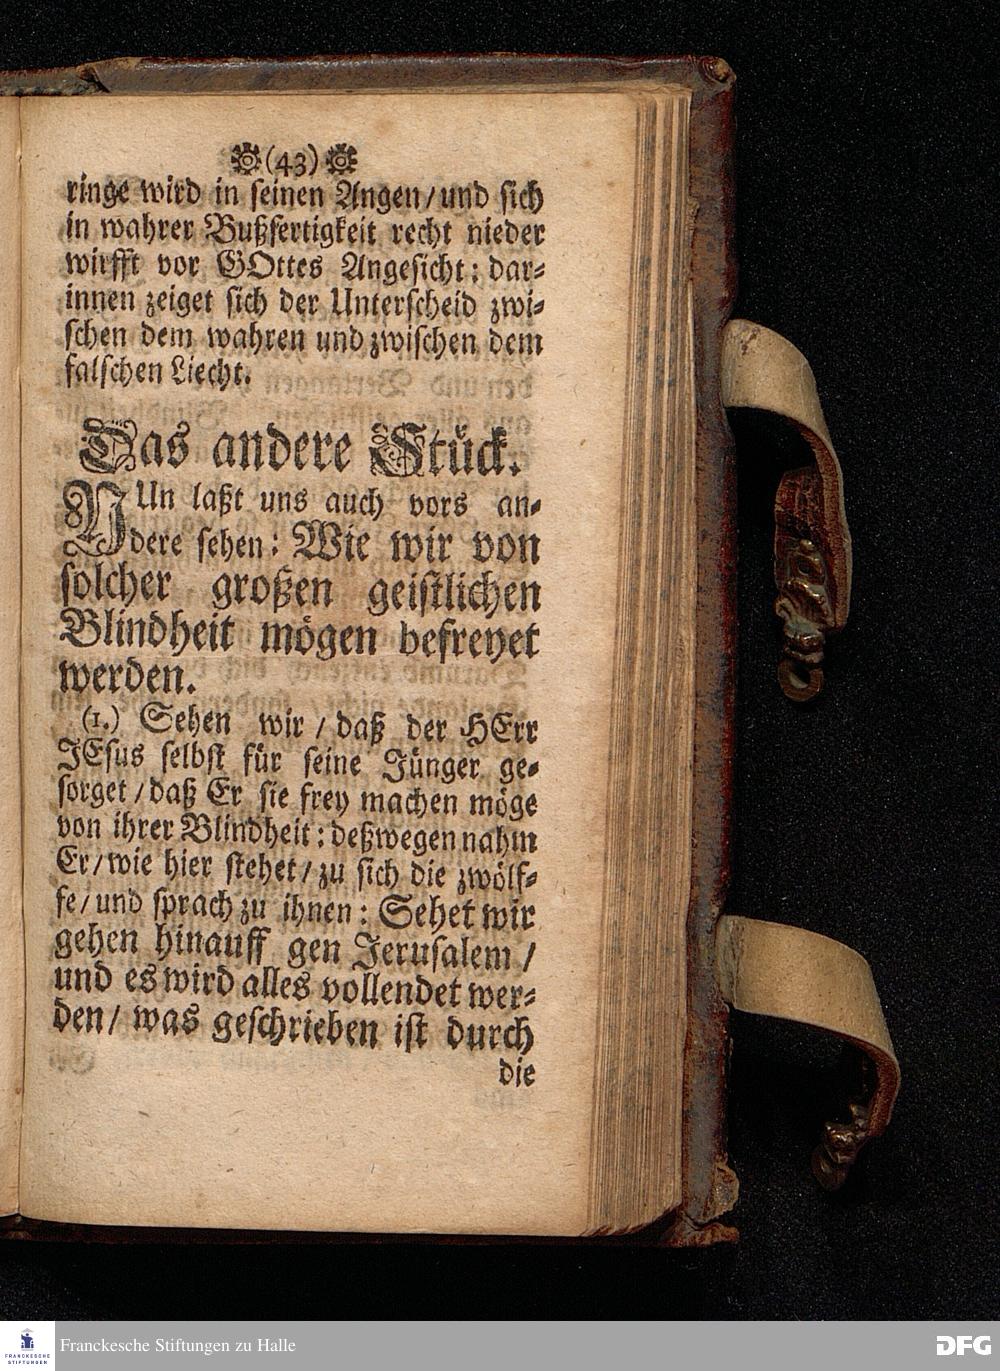 (43)
ringe wird in seinen Angen/und sich
in wahrer Bußfertigkeit recht nieder
wirfft vor GOttes Angesicht: dar-
innen zeiget sich der Unterscheid zwi-
schen dem wahren und zwischen dem
falschen Liecht.
Das andere Stück.
NUn laßt uns auch vors an-
dere sehen: Wie wir von
solcher großen geistlichen
Blindheit mögen befreyet
werden.
(1.) Sehen wir / daß der HErr
JEsus selbst für seine Jünger ge-
sorget / daß Er sie frey machen möge
von ihrer Blindheit: deßwegen nahm
Er/wie hier stehet/ zu sich die zwölf-
fe/und sprach zu ihnen: Sehet wir
gehen hinauff gen Jerusalem /
und es wird alles vollendet wer-
den/ was geschrieben ist durch
die
FRANCKESCHE
STIFTUNGEN
Franckesche Stiftungen zu Halle
DFG